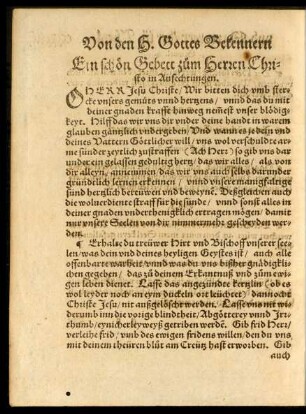 Von den H. Gottes Bekennern
Ein schön Gebett zům Herren Chri-
sto in Anfechtungen.
O HERR Jesu Christe/ Wir bitten dich vmb ster-
cke vnsers gemüts vnnd hertzens/ vnnd das du mit
deiner gnaden krafft hinweg nemest vnser blödig-
keyt. Hilff das wir vns vnder deine handt in warem
glauben gäntzlich vndergeben. Vnd wann es je dein vnd
deines Vatters Göttlicher will/ vns wol verschuldte ar-
me sünder zeytlich zůstraffen (Ach Herr) so gib vns dar
under ein gelassen gedultig hertz/ das wir alles/ als von
dir alleyn/ annemmen/ das wir vns auch selbs darunder
gründtlich lernen erkennen/ vnnd vnsere manigfaltige
sünd hertzlich berewen vnd beweynē. Deßgleichen auch
die wolverdiente straff für die sünde/ vnnd sonst alles in
deiner gnaden vnderthenigklich ertragen mögen/ damit
nur vnsere Seelen von dir nimmermehr gescheyden wer-
den.
¶ Erhalte du treüwer Hirt vnd Bischoff vnserer see-
len/ was dein vnd deines heyligen Geysts ist/ auch alle
offenbarte warheit/ vnd was du vns bißher gnädigkli-
chen gegeben/ das zů deinem Erkantnuß vnd zům ewi-
gen leben dienet. Lasse das angezündte kertzlin (ob es
wol leyder noch an eym dunckeln ort leüchtet) dannocht
Christe Jesu/ nit außgelöscht werden. Lasse vns nit wi-
derumb inn die vorige blindtheyt/ Abgötterey vnnd Ir-
thumb/ eynicherley weyß getriben werdē. Gib frid Herr/
verleihe frid/ vnd des ewigen fridens willen/ den du vns
mit deinem theüren blůt am Creütz hast erworben. Gib
auch